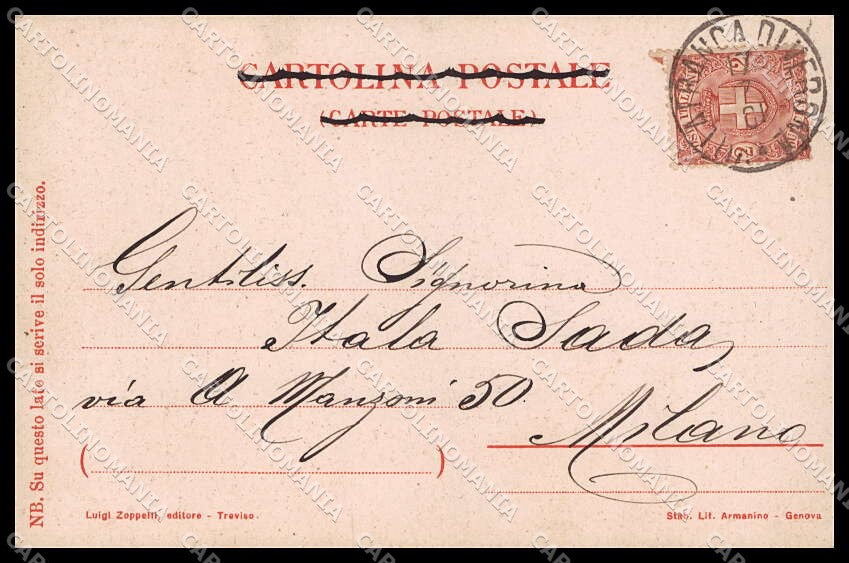 CARTOLINA POSTALE
(CARTE POSTALE)
NB. Su questo lato si scrive il solo indirizzo.
Gentiliss. Signorina
Itala Sada,
via A Manzoni 50.
Milano
Luigi Zoppelli, editore - Treviso.
Stab. Lit. Armanino - Genova
CARTOLINOMANIA